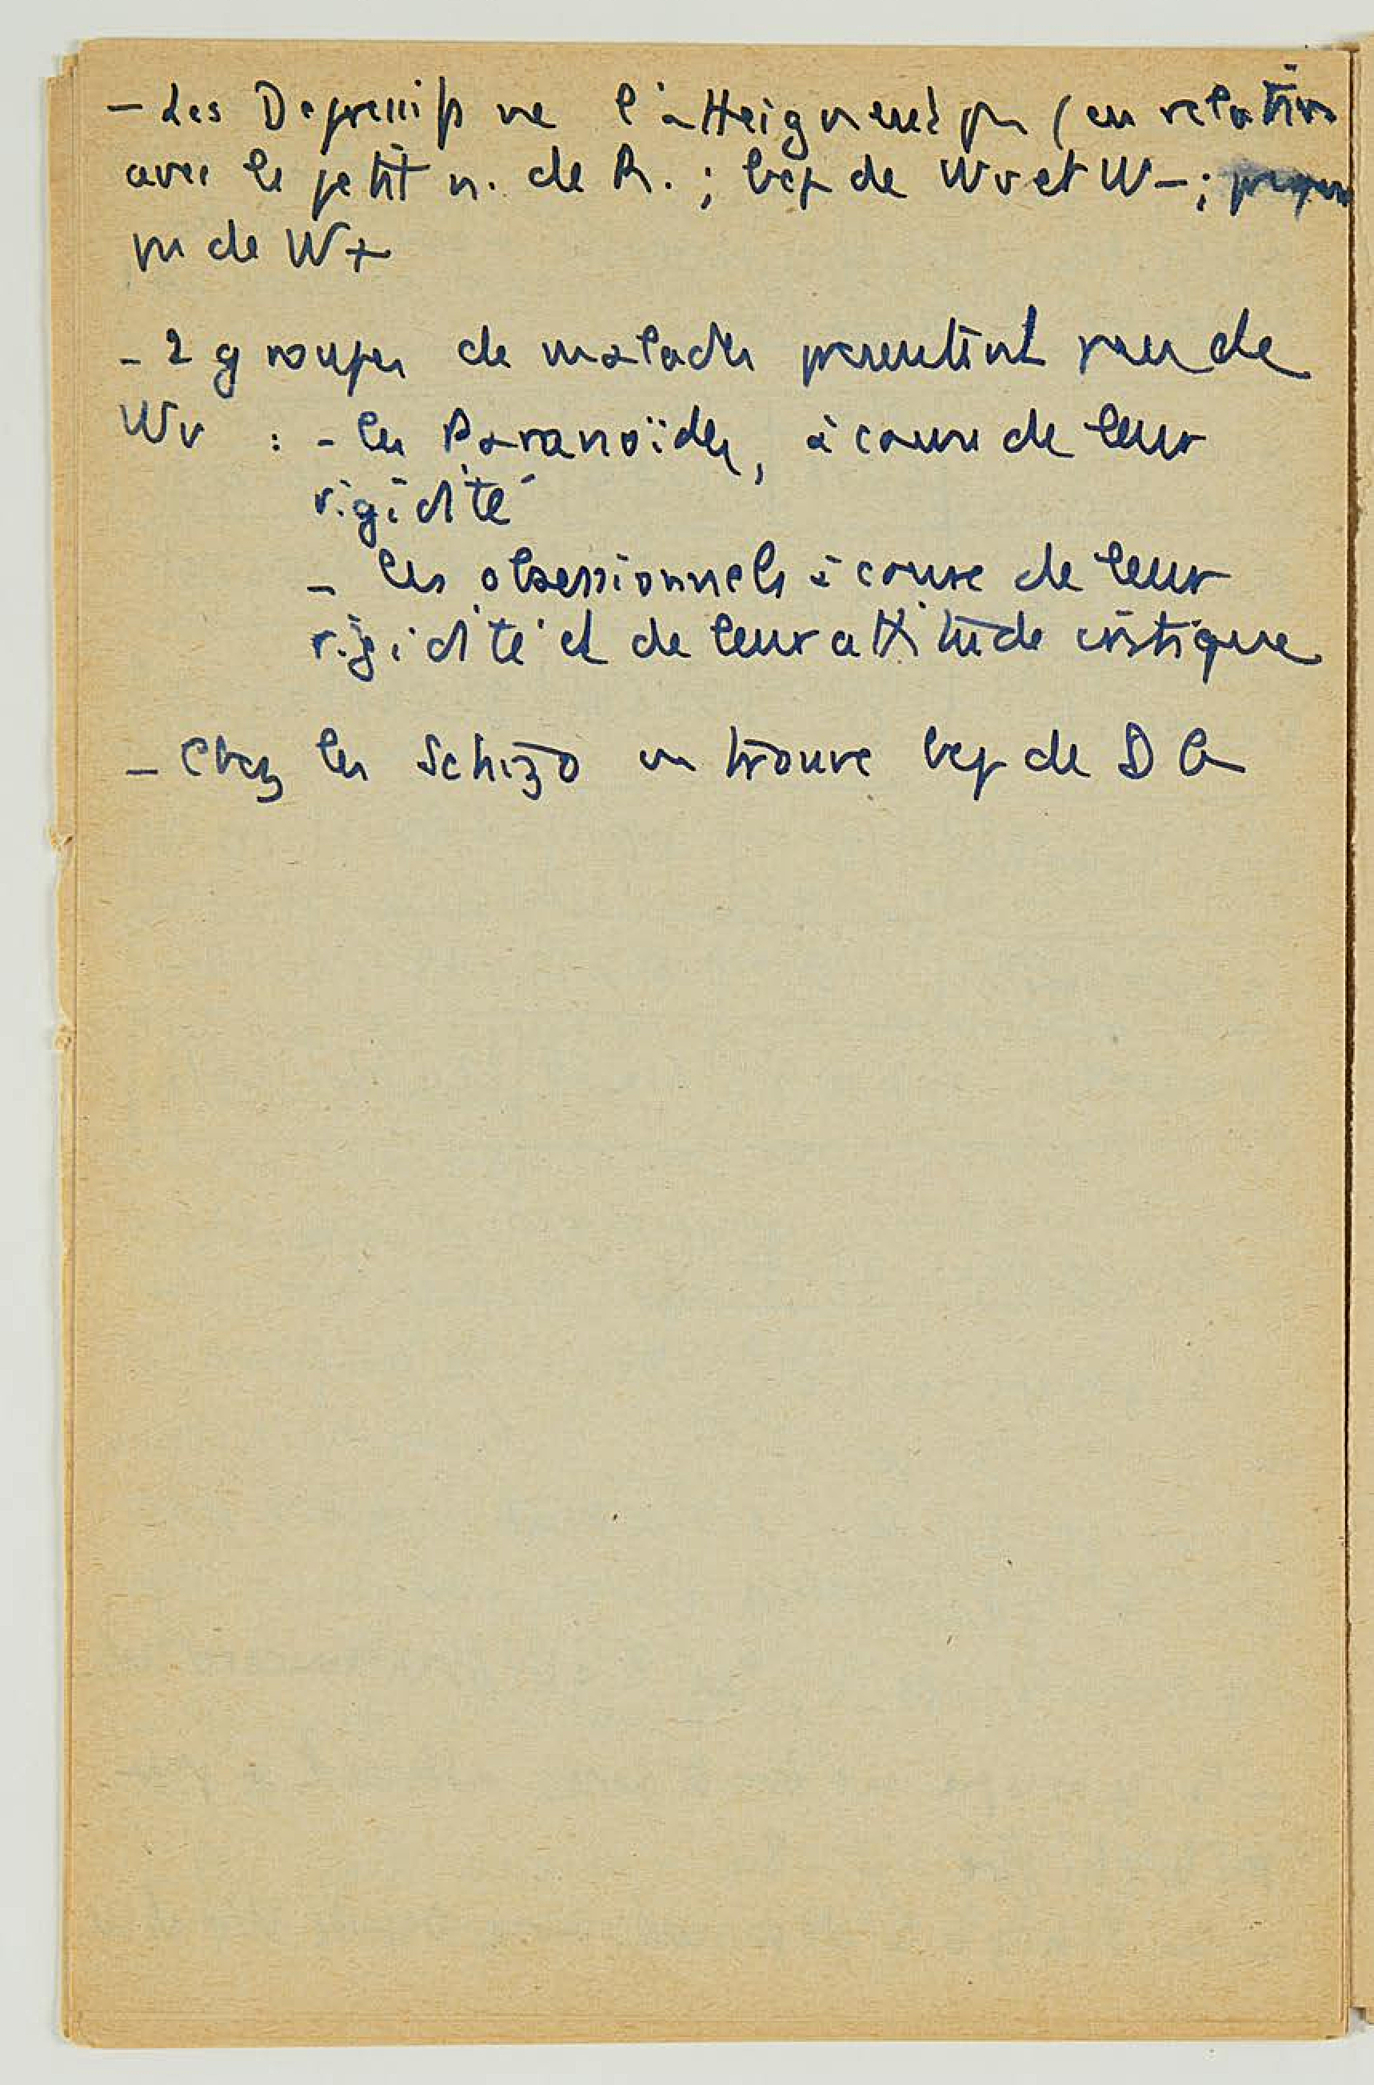 - Les Depressifs ne l'atteignent pas (en relation
avec le petit n. de R. ; bcp de Wv et W- ; presque
pas de W+
- 2 groupes de malades présentent peu de
Wv : - les Paranoïdes, à cause de leur
rigidité
- les obsessionnels à cause de leur
rigidité et de leur attitude critique
- Chez les Schizo on trouve bcp de D